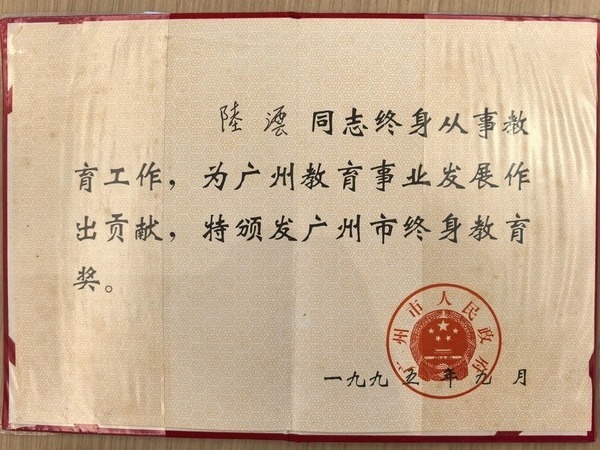 陸澐同志终身从事教
育工作，为广州教育事业发展作
出贡献，特颁发广州市终身教育
奖。
广州市人民政府
一九九五年九月